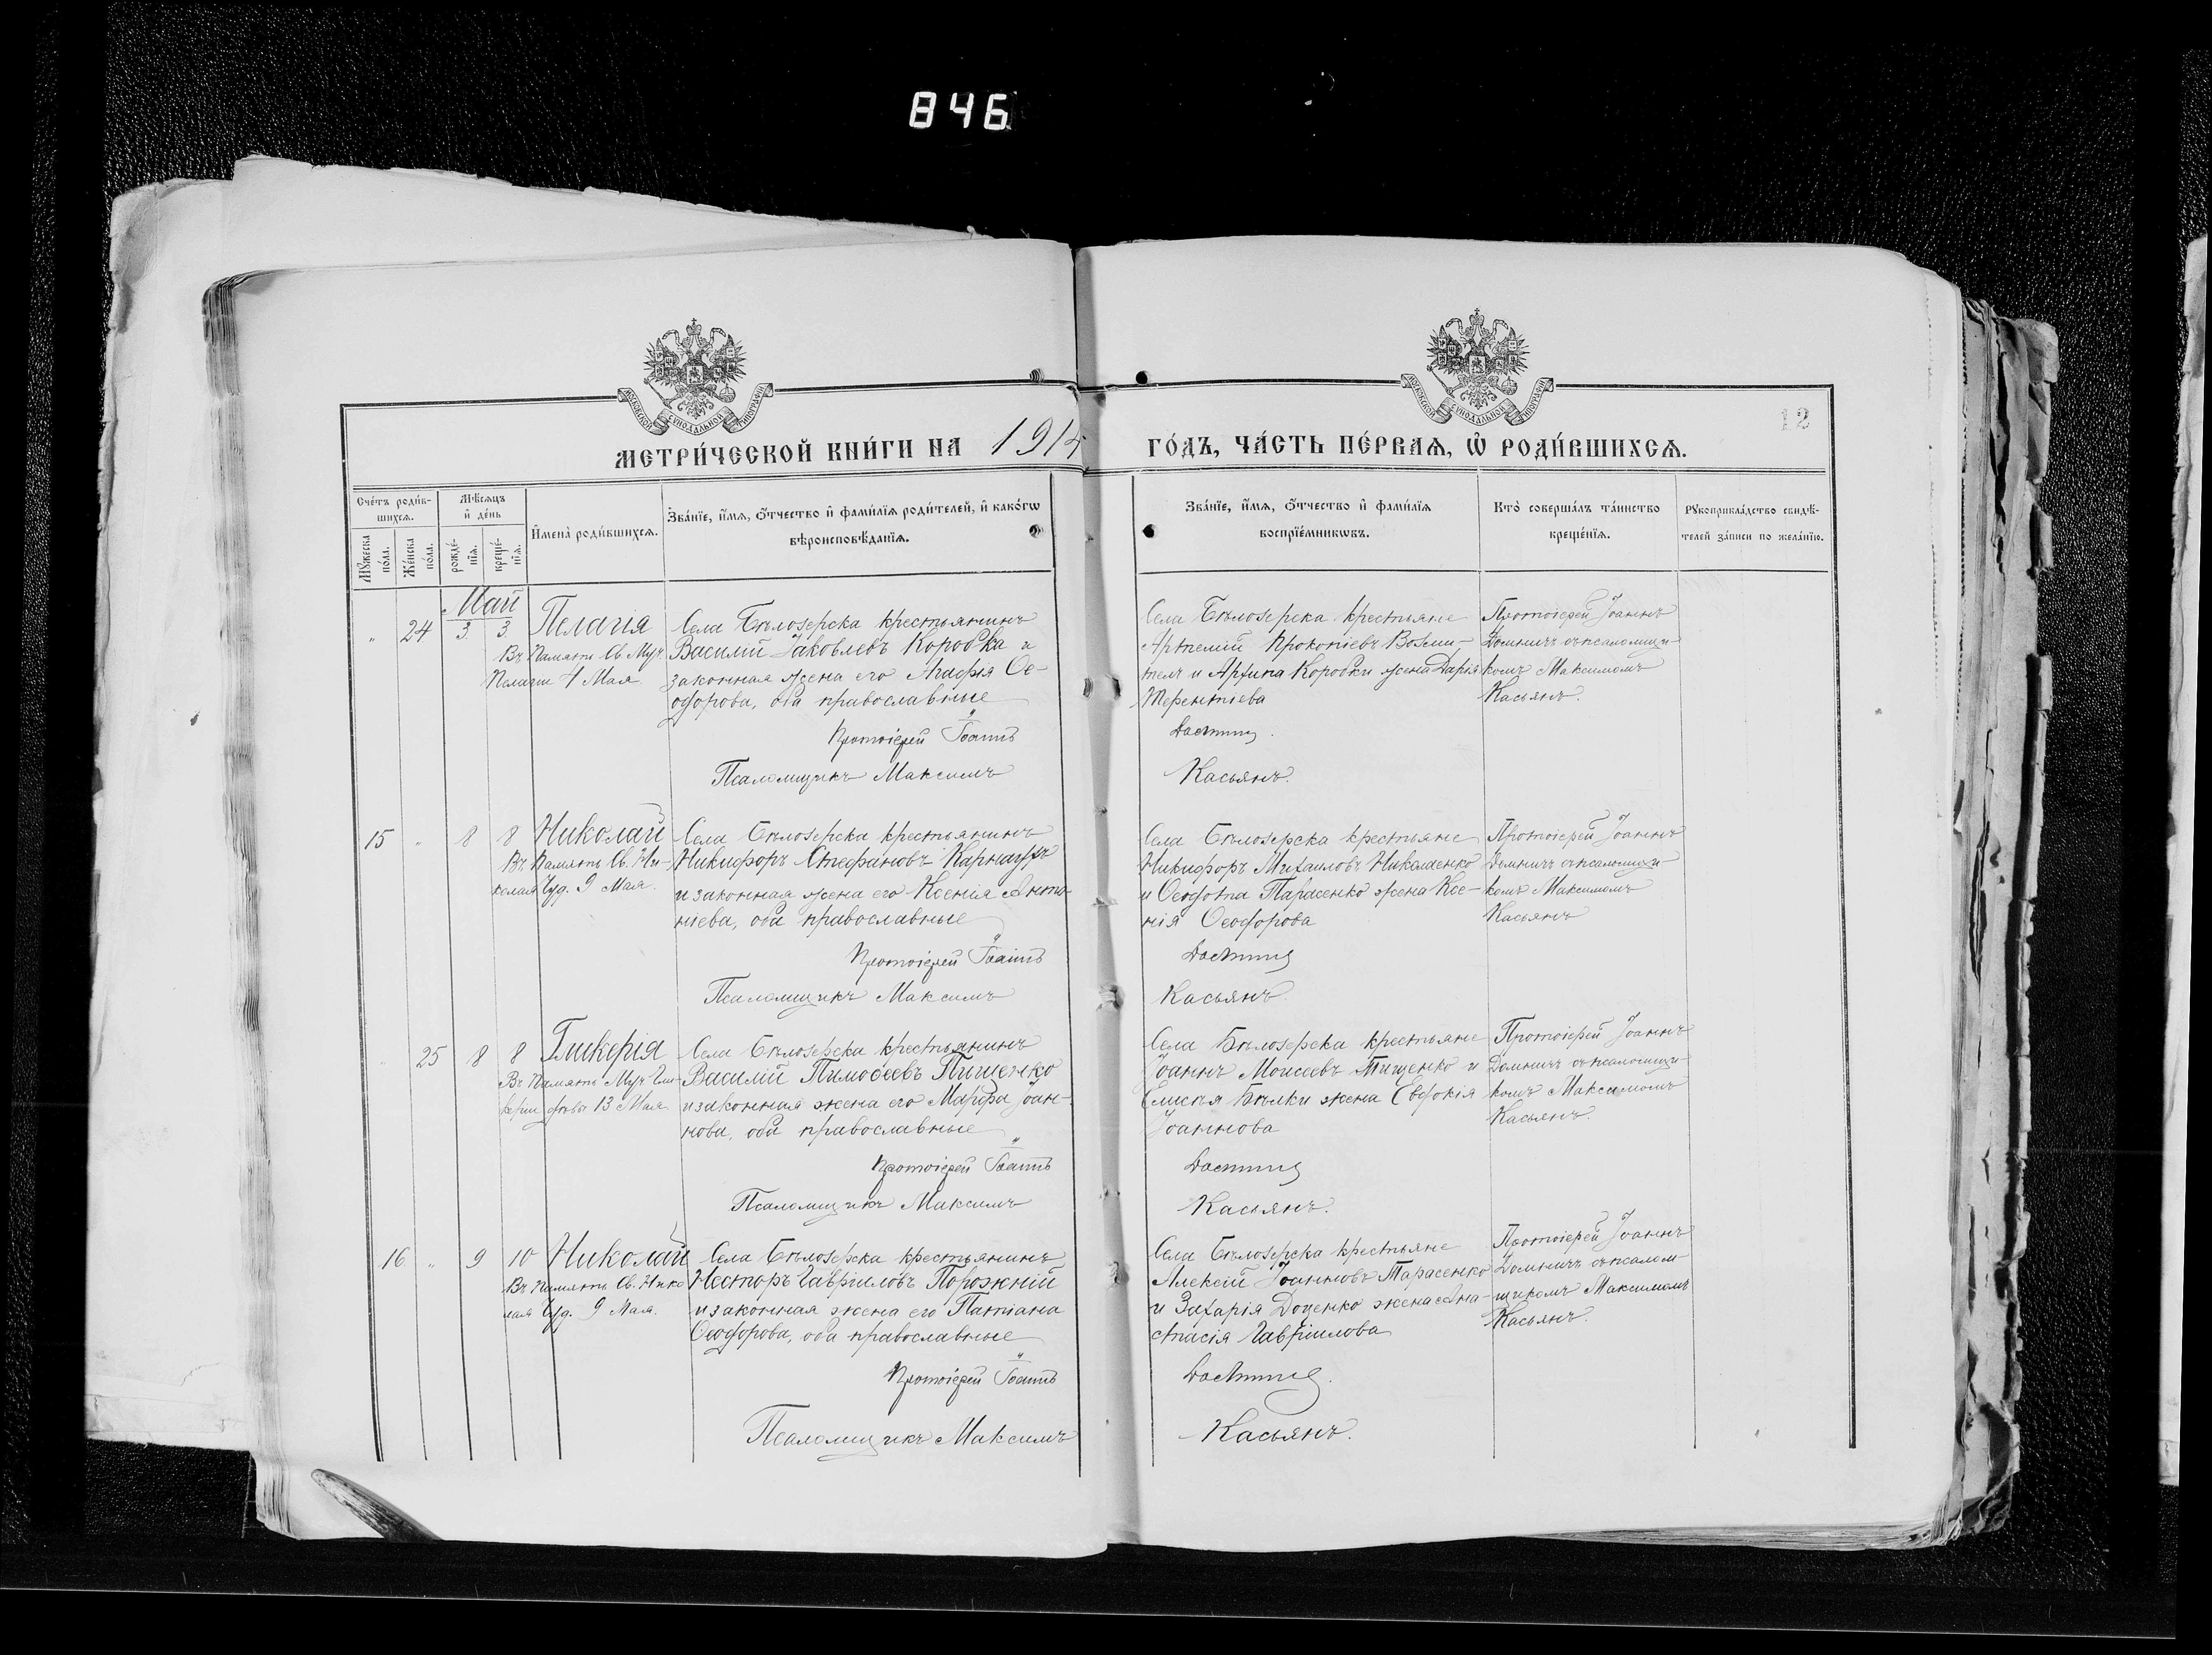 846
МОСКОВСКОЙ СУНОДАЛЬНОЙ ТИПОГРАФІИ
МОСКОВСКОЙ СУНОДАЛЬНОЙ ТИПОГРАФІИ
12
МЕТРИ́ЧЕСКОЙ КНИ́ГИ НА 1914 ГО́ДЪ, ЧА́СТЬ ПЕ́РВАѦ, Ѡ҆ РОДИ́ВШИХСѦ.
Сче́тъ роди́в-
шихсѧ.
Мѣ́сѧцъ
и҆ де́нь
И҆мена̀ роди́вшихсѧ.
Зва́нїе, и҆́мѧ, ѻ҆́тчество и҆ фами́лїѧ роди́телей, и҆ како́гѡ
вѣроисповѣ́данїѧ.
Зва́нїе, и҆́мѧ, ѻ҆́тчество и҆ фами́лїѧ
воспрїе́мникѡвъ.
Кто̀ соверша́лъ та́инство
креще́нїѧ.
Рꙋкоприкла́дство свидѣ́-
телей за́писи по жела́нїю.
Мꙋ́жеска
по́ла.
Же́нска
по́ла.
рожде́-
нїѧ.
креще́-
нїѧ.
Май
" 24 3. 3. Пелагія
Въ память Св. Муч.
Пелагіи 4 Мая
Села Бѣлозерска крестьянинъ
Василій Іаковлевъ Коробка и
законная жена его Агафія Ѳе-
одорова, оба православные
Протоіерей Іоаннъ
Псаломщикъ Максимъ
Села Бѣлозерска крестьяне
Артемій Прокопіевъ
и Архипа Коробки жена Дарія
Терентіева
Касьянъ.
Протоіерей Іоаннъ
съ псаломщи-
комъ Максимомъ
Касьянъ.
15 " 8 8 Николай
Въ память Св. Ни-
колая Чуд. 9 Мая.
Села Бѣлозерска крестьянинъ
Никифоръ Стефановъ Карнаухъ
и законная жена его Ксенія Анто-
ніева, оба православные
Протоіерей Іоаннъ
Псаломщикъ Максимъ
Села Бѣлозерска крестьяне
Никифоръ Михаиловъ Николаенко
и Тарасенко жена Ксе-
нія Ѳеодорова
Касьянъ
Протоіерей Іоаннъ
съ псаломщи-
комъ Максимомъ
Касьянъ
" 25 8 8 Гликерія
Въ память Муч. Гли-
керіи дѣвы 13 Мая
Села Бѣлозерска крестьянинъ
Василій Тимоѳеевъ Тищенко
и законная жена его Марѳа Іоан-
нова, оба православные
Протоіерей Іоаннъ
Псаломщикъ Максимъ
Села Бѣлозерска крестьяне
Іоаннъ Моисеевъ Тищенко и
Елисея Бѣлки жена Евдокія
Іоаннова
Касьянъ.
Протоіерей Іоаннъ
съ псаломщи-
комъ Максимомъ
Касьянъ.
16. " 9 10 Николай
Въ память Св. Нико
лая Чуд. 9 Мая.
Села Бѣлозерска крестьянинъ
Несторъ Гавріиловъ Порожній
и законная жена его Татіана
Ѳеодорова, оба православные
Протоіерей Іоаннъ
Псаломщикъ Максимъ
Села Бѣлозерска крестьяне
Алексій Іоанновъ Тарасенко
и Захарія Доценко жена Ана-
стасія Гавріилова
Касьянъ.
Протоіерей Іоаннъ
съ псалом-
щикомъ Максимомъ
Касьянъ.